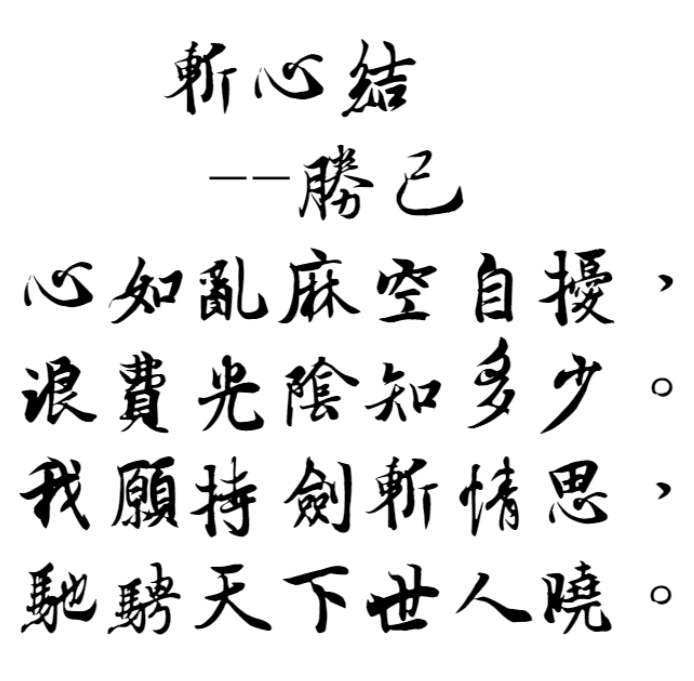 斬心結
——勝己
心如亂麻空自擾，
浪費光陰知多少。
我願持劍斬情思，
馳騁天下世人曉。